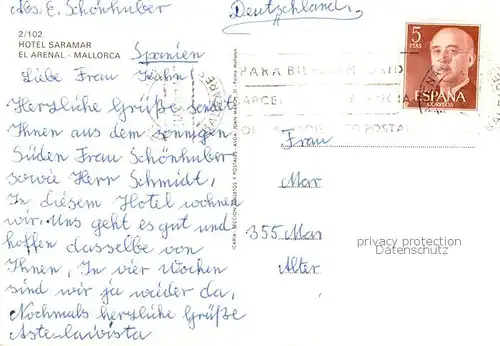 Abs. E. Schönhuber
(Deutschland)
2/102
HOTEL SARAMAR
EL ARENAL - MALLORCA
Spanien
Liebe Frau Hahn!
Herzliche Grüße sendet
Ihnen aus dem sonnigen
Süden Frau Schönhuber
sowie Herr Schmidt,
In diesem Hotel wohnen
wir. Uns geht es gut und
hoffen dasselbe von
Ihnen, In vier Wochen
sind wir ja wieder da,
Nochmals herzliche Grüße
5
PTAS
ESPAÑA
CORREOS
PARA
Frau
Mar
355 Mar
Alter
privacy protection
Datenschutz